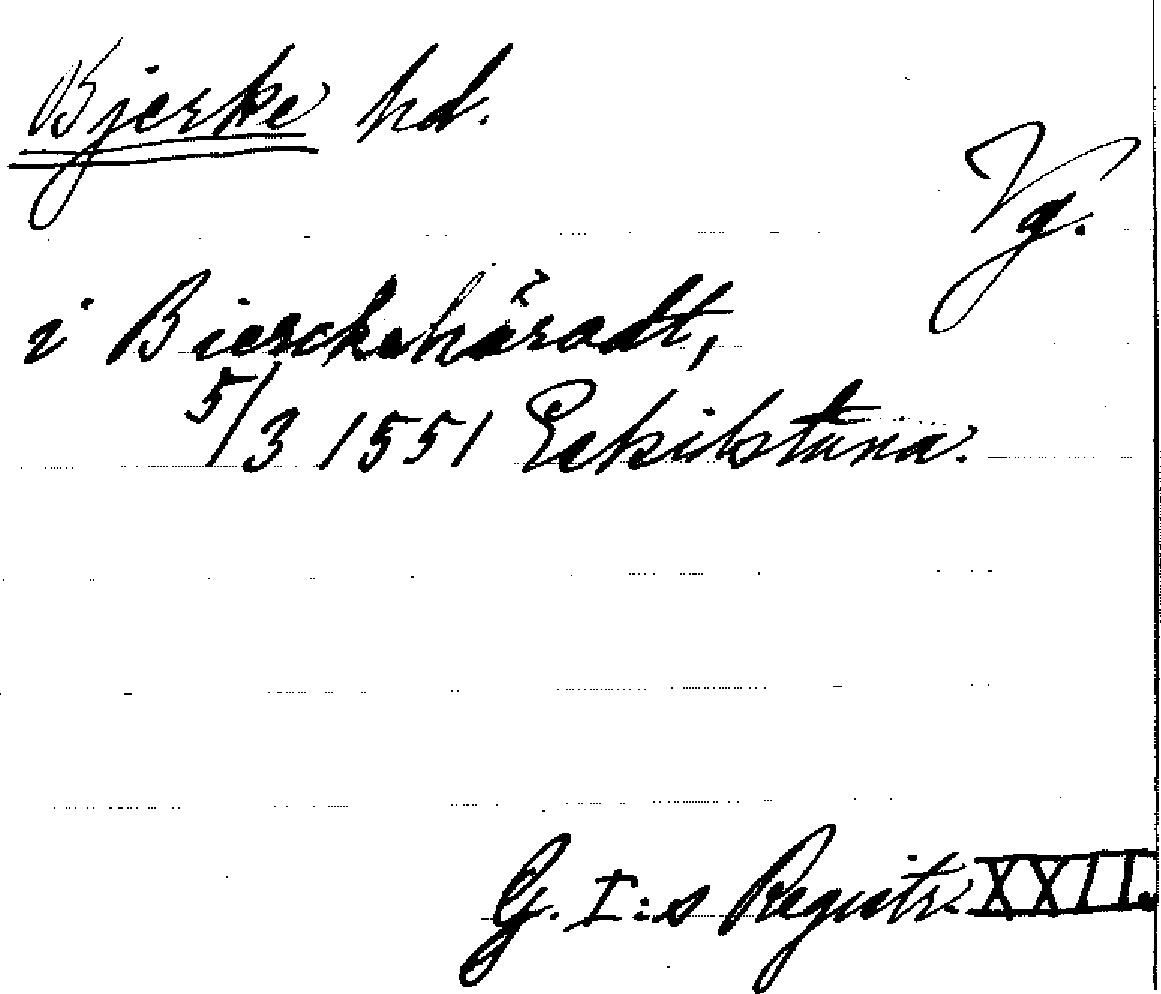 Bjerke hd.
Vg.
i Bierckehäradt,
5/3 1551 Eskilstuna.
G. I:s Registr. XXII.